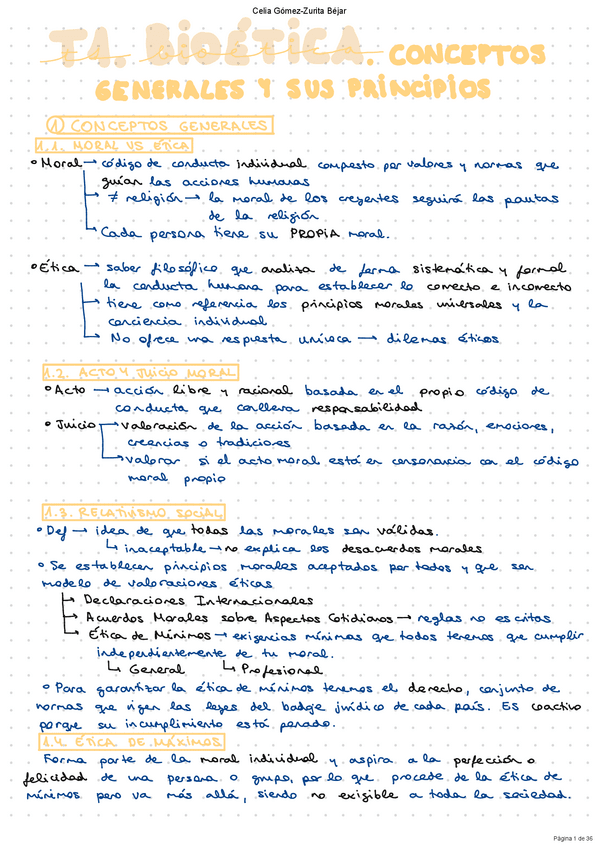 Celia Gómez-Zurita Béjar
T1. BIOÉTICA. CONCEPTOS
GENERALES Y SUS PRINCIPIOS
① CONCEPTOS GENERALES
1.1. MORAL VS ÉTICA
• Moral → código de conducta individual compuesto por valores y normas que
guían las acciones humanas
→ ≠ religión → la moral de los creyentes seguirá las pautas
de la religión
→ Cada persona tiene su PROPIA moral.
• Ética → saber filosófico que analiza de forma sistemática y formal
la conducta humana para establecer lo correcto e incorrecto
→ tiene como referencia los principios morales universales y la
conciencia individual
→ No ofrece una respuesta unívoca → dilemas éticos
1.2. ACTO Y JUICIO MORAL
• Acto → acción libre y racional basada en el propio código de
conducta que conlleva responsabilidad
• Juicio → valoración de la acción basada en la razón, emociones,
creencias o tradiciones
→ valorar si el acto moral está en consonancia con el código
moral propio
1.3. RELATIVISMO SOCIAL
• Def → idea de que todas las morales son válidas.
↳ inaceptable → no explica los desacuerdos morales
• Se establecen principios morales aceptados por todos y que son
modelo de valoraciones éticas
→ Declaraciones Internacionales
→ Acuerdos Morales sobre Aspectos Cotidianos → reglas no escritas
→ Ética de Mínimos → exigencias mínimas que todos tenemos que cumplir
independientemente de tu moral.
↳ General ↳ Profesional
• Para garantizar la ética de mínimos tenemos el derecho, conjunto de
normas que rigen las leyes del badaje jurídico de cada país. ES coactivo
porque su incumplimiento está penado.
1.4. ÉTICA DE MÁXIMOS
Forma parte de la moral individual y aspira a la perfección o
felicidad de una persona o grupo, por lo que procede de la ética de
mínimos pero va más allá, siendo no exigible a toda la sociedad.
Página 1 de 36